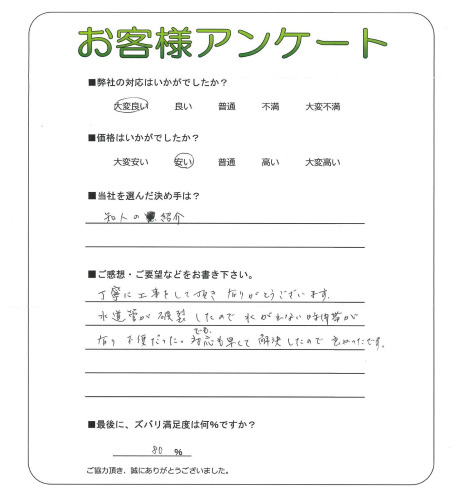 お客様アンケート
■弊社の対応はいかがでしたか？
大変良い 良い 普通 不満 大変不満
■価格はいかがでしたか？
大変安い 安い 普通 高い 大変高い
■当社を選んだ決め手は？
知人の 紹介
■ご感想・ご要望などをお書き下さい。
丁寧に工事をして頂き有りがとうございます。
水道管が破裂したので水が使えない時間帯が
有り不便だった。でも、対応も早して解決したので良かったです。
■最後に、ズバリ満足度は何％ですか？
80 ％
ご協力頂き、誠にありがとうございました。